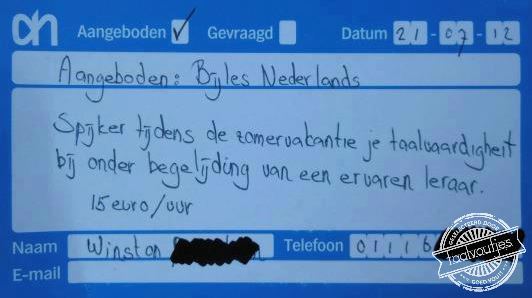 ah Aangeboden Gevraagd Datum 21-07-12
Aangeboden: Bijles Nederlands
Spijker tijdens de zomervakantie je taalvaardigheit
bij onder begelijding van een ervaren leraar.
15 euro/uur
Naam Winston Telefoon 01116
E-mail
taalvoutjes